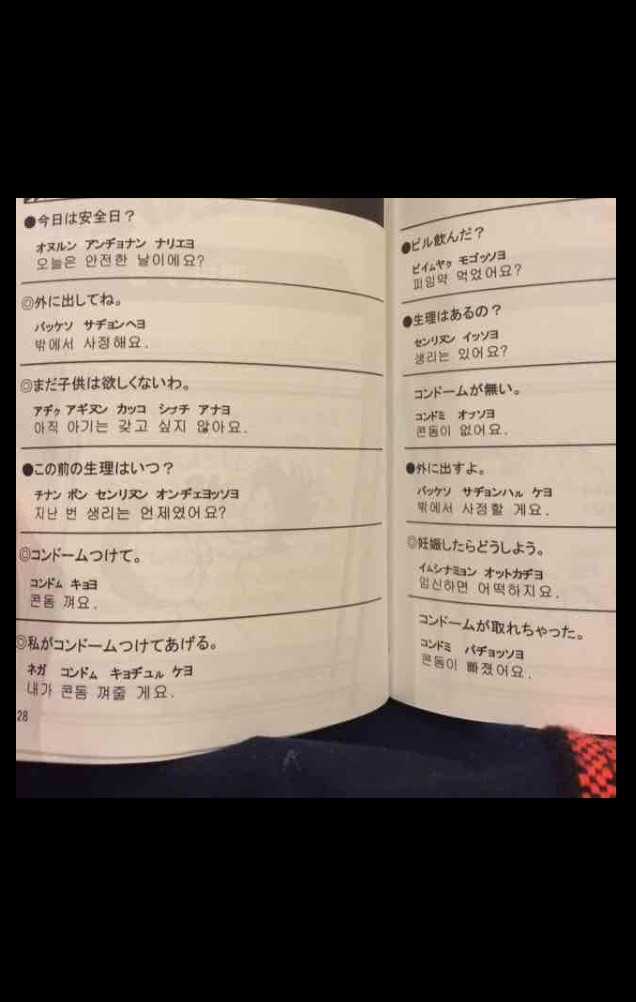 ●今日は安全日？
オヌルン アンヂョナン ナリエヨ
오늘은 안전한 날이에요?
◎外に出してね。
パッケソ サヂョンヘヨ
밖에서 사정해요.
◎まだ子供は欲しくないわ。
アヂゥ アギヌン カッコ シプチ アナヨ
아직 아기는 갖고 싶지 않아요.
●この前の生理はいつ？
チナン ポン センリヌン オンヂェヨッソヨ
지난 번 생리는 언제였어요?
◎コンドームつけて。
コンドム キョヨ
콘돔 껴요.
◎私がコンドームつけてあげる。
ネガ コンドム キョヂュル ケヨ
내가 콘돔 껴줄 게요.
28
●ピル飲んだ？
ピイムヤゥ モゴッソヨ
피임약 먹었어요?
●生理はあるの？
センリヌン イッソヨ
생리는 있어요?
コンドームが無い。
コンドミ オプソヨ
콘돔이 없어요.
●外に出すよ。
パッケソ サヂョンハル ケヨ
밖에서 사정할 게요.
◎妊娠したらどうしよう。
イムシナミョン オットカヂヨ
임신하면 어떡하지요.
コンドームが取れちゃった。
コンドミ パヂョッソヨ
콘돔이 빠졌어요.